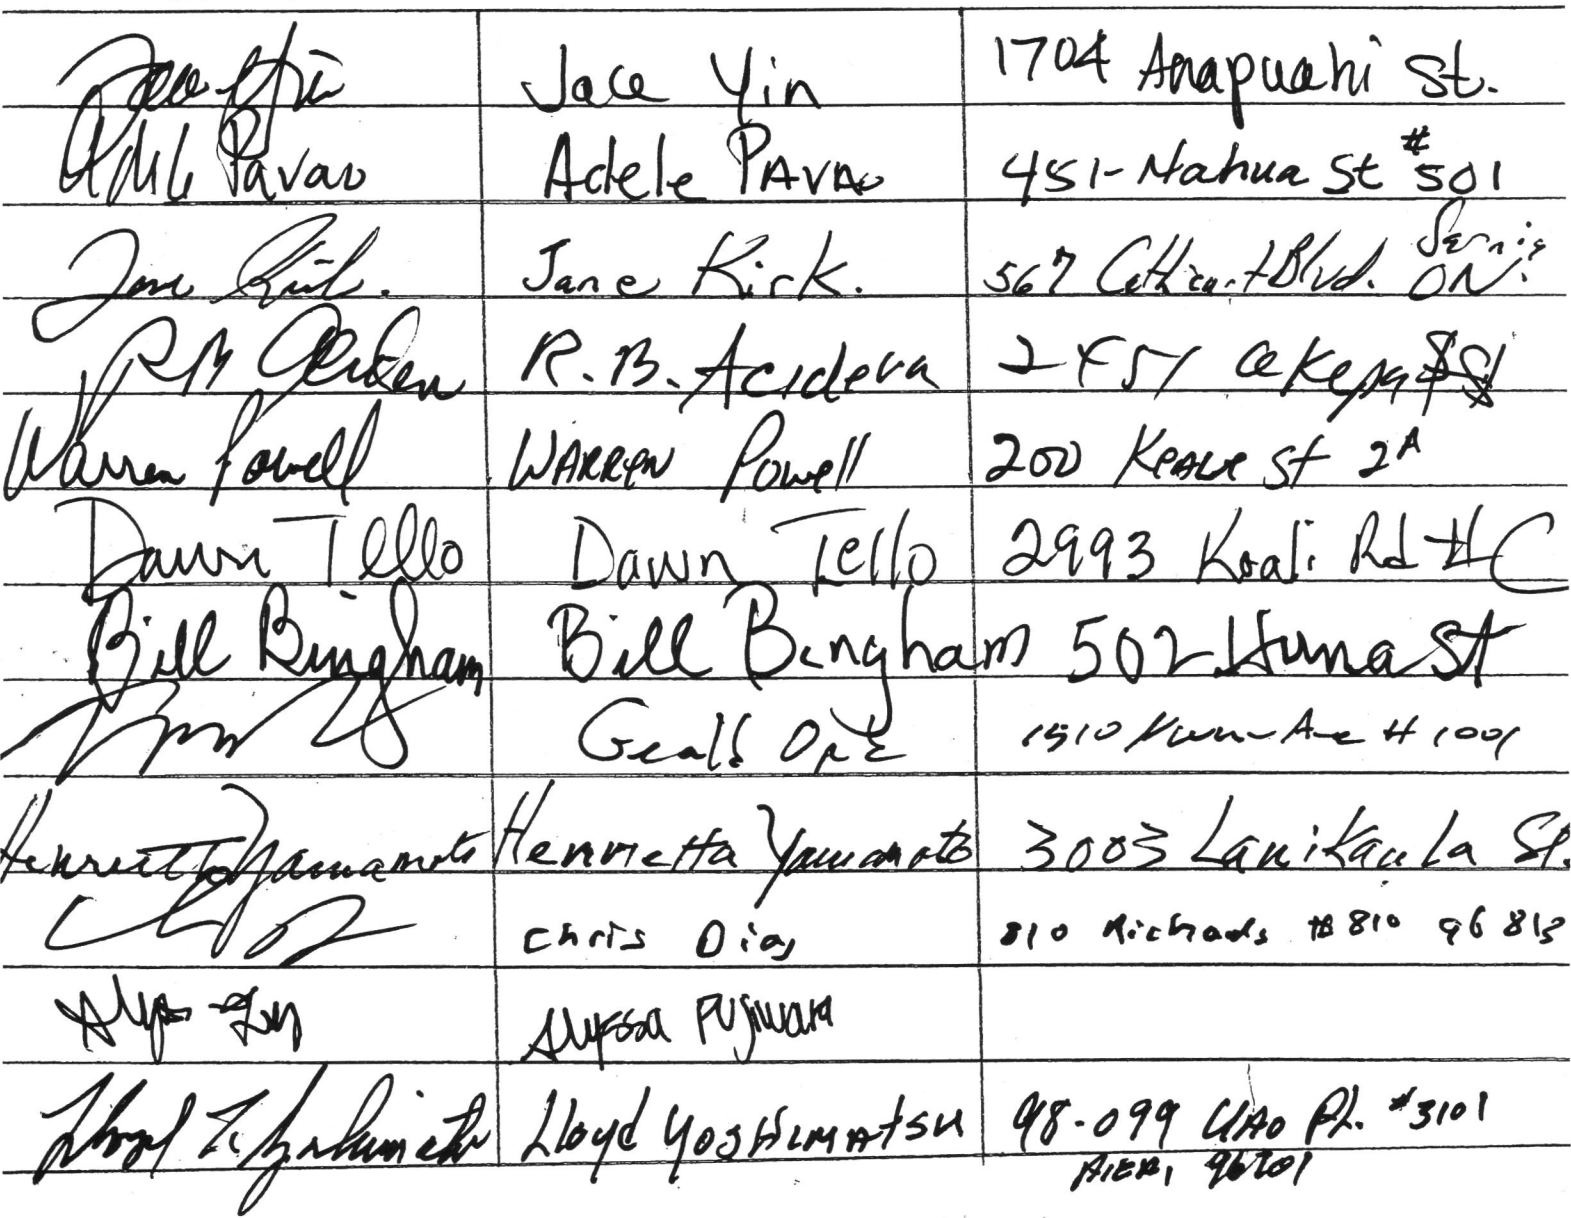 Jace Yin Jace Yin 1704 Anapuahi St.
Adele Pavao Adele PAVAO 451-Nahua St #501
Jane Kirk. Jane Kirk. 567 Cathcart Blvd. Sarnia ON.
R.B. 2451 St
Warren Powell WARREN Powell 200 Keawe St 2A
Dawn Tello Dawn Tello 2993 Koali Rd #C
Bill Bingham Bill Bingham 502 Huna St
1510 Ave #1001
Henrietta Yamamoto Henrietta Yamamoto 3003 Lanikaula St.
Chris Dias 810 Richards #810 96813
Alyssa Fujiwara
Lloyd Yoshimatsu Lloyd YOSHIMATSU 98-099 UAO PL. #3101
AIEA, 96701